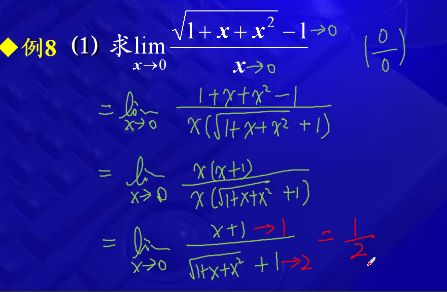 ◆例8 (1) 求 lim_{x→0} (√(1+x+x²) −1 →0) / (x →0) (0/0)
= lim_{x→0} (1+x+x²−1) / (x(√(1+x+x²) +1))
= lim_{x→0} (x(x+1)) / (x(√(1+x+x²) +1))
= lim_{x→0} (x+1 →1) / (√(1+x+x²) +1 →2) = 1/2